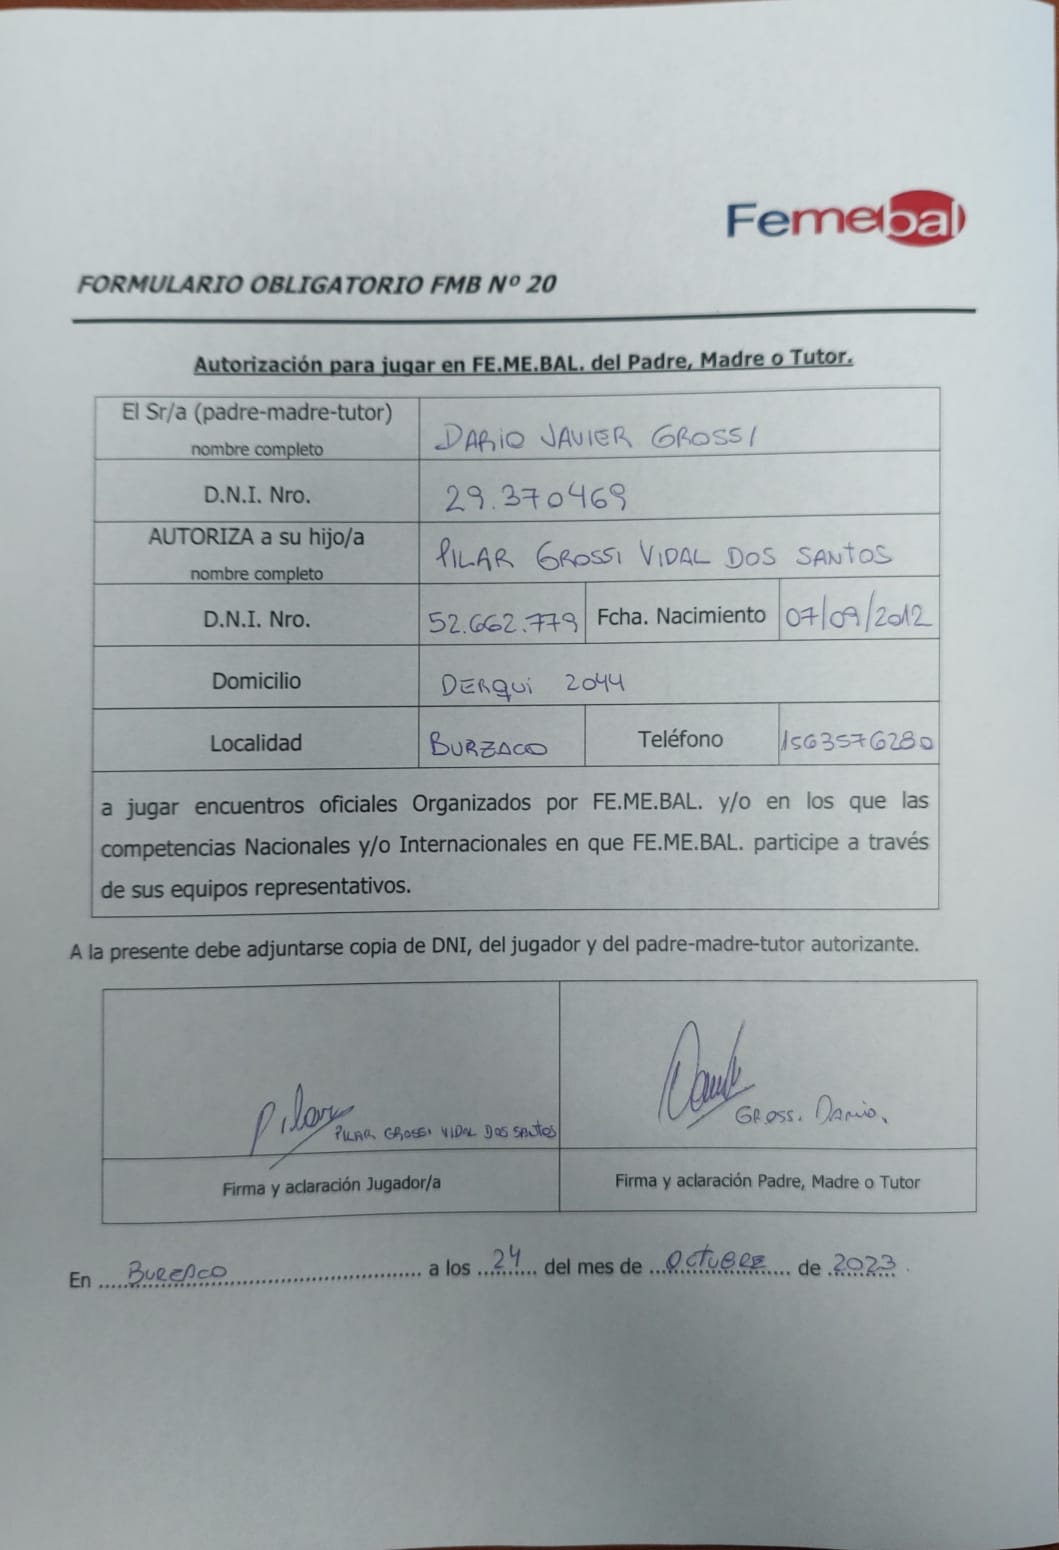 Femebal
FORMULARIO OBLIGATORIO FMB Nº 20
Autorización para jugar en FE.ME.BAL. del Padre, Madre o Tutor.
El Sr/a (padre-madre-tutor)
nombre completo
DARIO JAVIER GROSSI
D.N.I. Nro.
29.370469
AUTORIZA a su hijo/a
nombre completo
PILAR GROSSI VIDAL DOS SANTOS
D.N.I. Nro. 52.662.779 Fcha. Nacimiento 07/09/2012
Domicilio DERQUI 2044
Localidad BURZACO Teléfono 1563576280
a jugar encuentros oficiales Organizados por FE.ME.BAL. y/o en los que las
competencias Nacionales y/o Internacionales en que FE.ME.BAL. participe a través
de sus equipos representativos.
A la presente debe adjuntarse copia de DNI, del jugador y del padre-madre-tutor autorizante.
Pilar
PILAR GROSSI VIDAL DOS SANTOS
GROSSI DARIO.
Firma y aclaración Jugador/a
Firma y aclaración Padre, Madre o Tutor
En BURZACO a los 24 del mes de OCTUBRE de 2023.